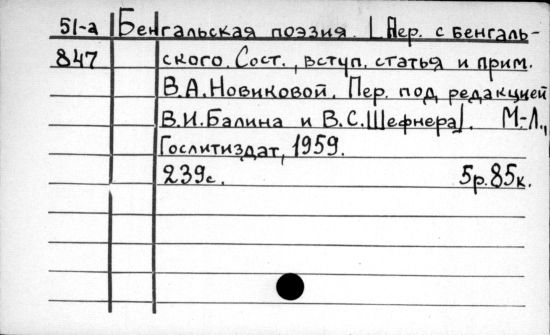 51-а Бенгальская поэзия. [Пер. с бенгаль-
847 ского. Сост., вступ. статья и прим.
В.А. Новиковой. Пер. под редакцией
В.И. Балина и В.С. Шефнера]. М.-Л.,
Гослитиздат, 1959.
239с. 5р. 85к.